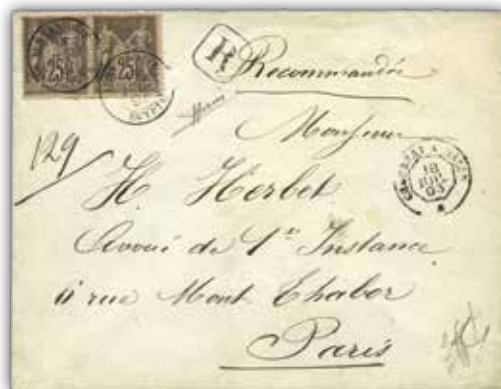 25 25
R
Recommandée
129
Monsieur
H. Herbet
Avoué de 1re Instance
6 rue Mont Thabor
Paris